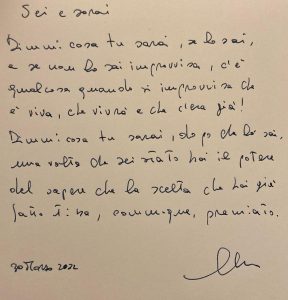 Sei e sarai
Dimmi cosa tu sarai, se lo sai,
e se non lo sai improvvisa, c'è
qualcosa quando si improvvisa che
è viva, che vivrà e che c'era già!
Dimmi cosa tu sarai, dopo che lo sai,
una volta che sei stato hai il potere
del sapere che la scelta che hai già
fatto ti ha, comunque, premiato.
30 Marzo 2022